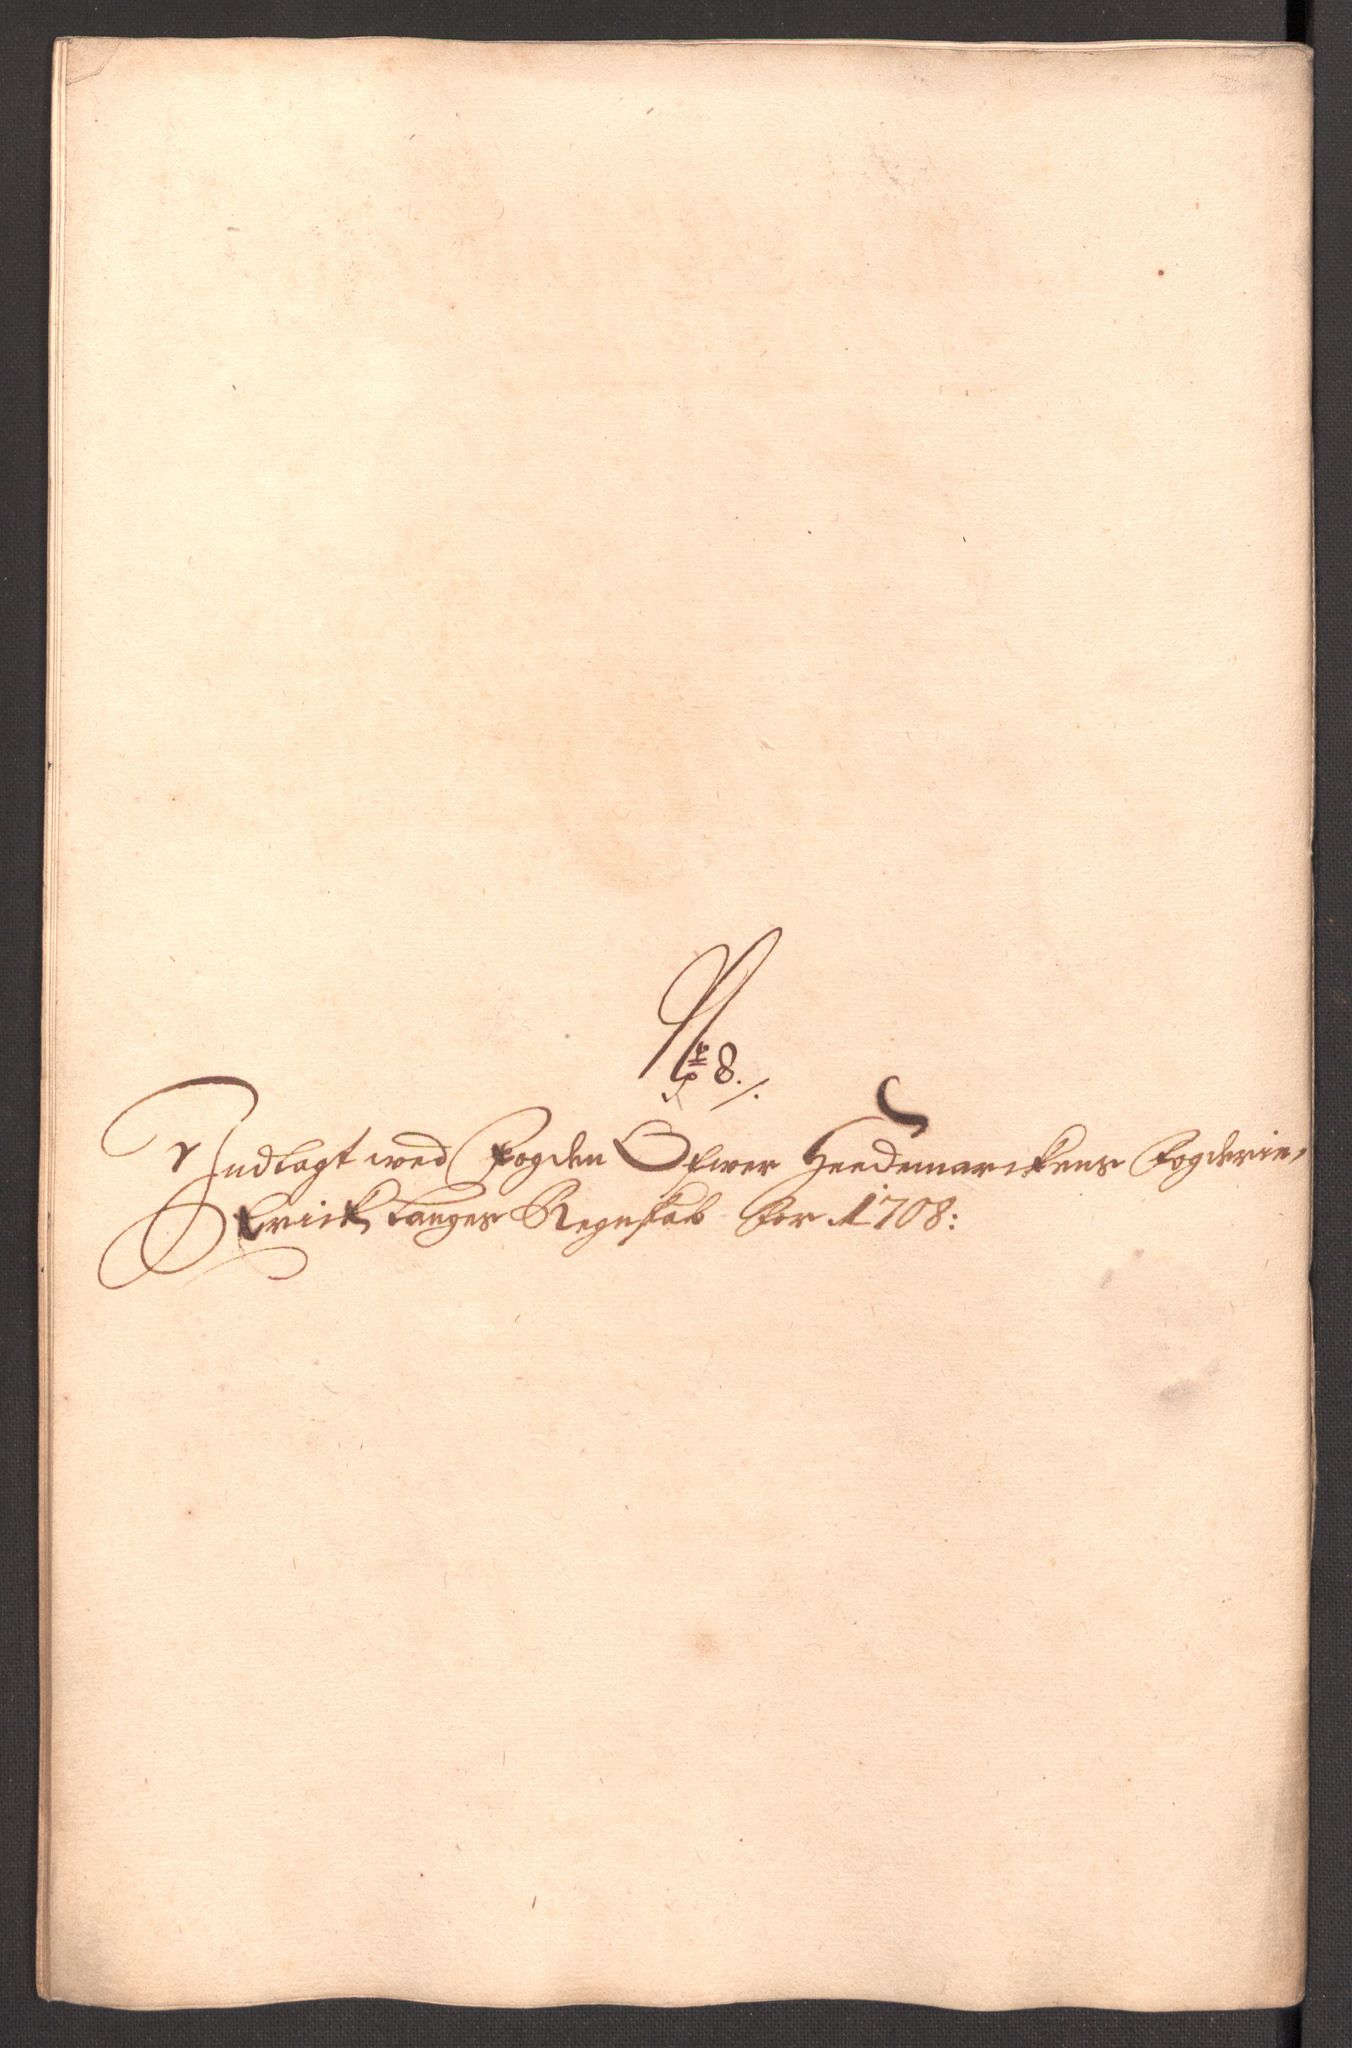 Nro 8.
Indlagt wed Fogden Ofwer Heedemarckens Fogderie,
Erick Langes Regnskab for 1708: